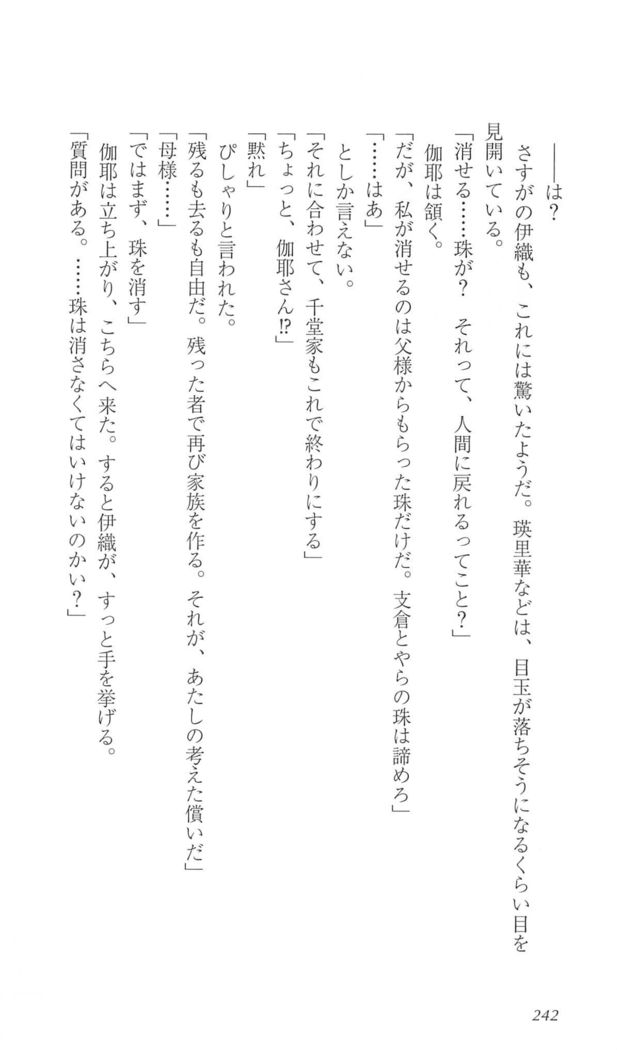 ――は？
さすがの伊織も、これには驚いたようだ。瑛里華などは、目玉が落ちそうになるくらい目を
見開いている。
「消せる……珠が？　それって、人間に戻れるってこと？」
伽耶は頷く。
「だが、私が消せるのは父様からもらった珠だけだ。支倉とやらの珠は諦めろ」
「……はあ」
としか言えない。
「それに合わせて、千堂家もこれで終わりにする」
「ちょっと、伽耶さん!?」
「黙れ」
ぴしゃりと言われた。
「残るも去るも自由だ。残った者で再び家族を作る。それが、あたしの考えた償いだ」
「母様……」
「ではまず、珠を消す」
伽耶は立ち上がり、こちらへ来た。すると伊織が、すっと手を挙げる。
「質問がある。……珠は消さなくてはいけないのかい？」
242